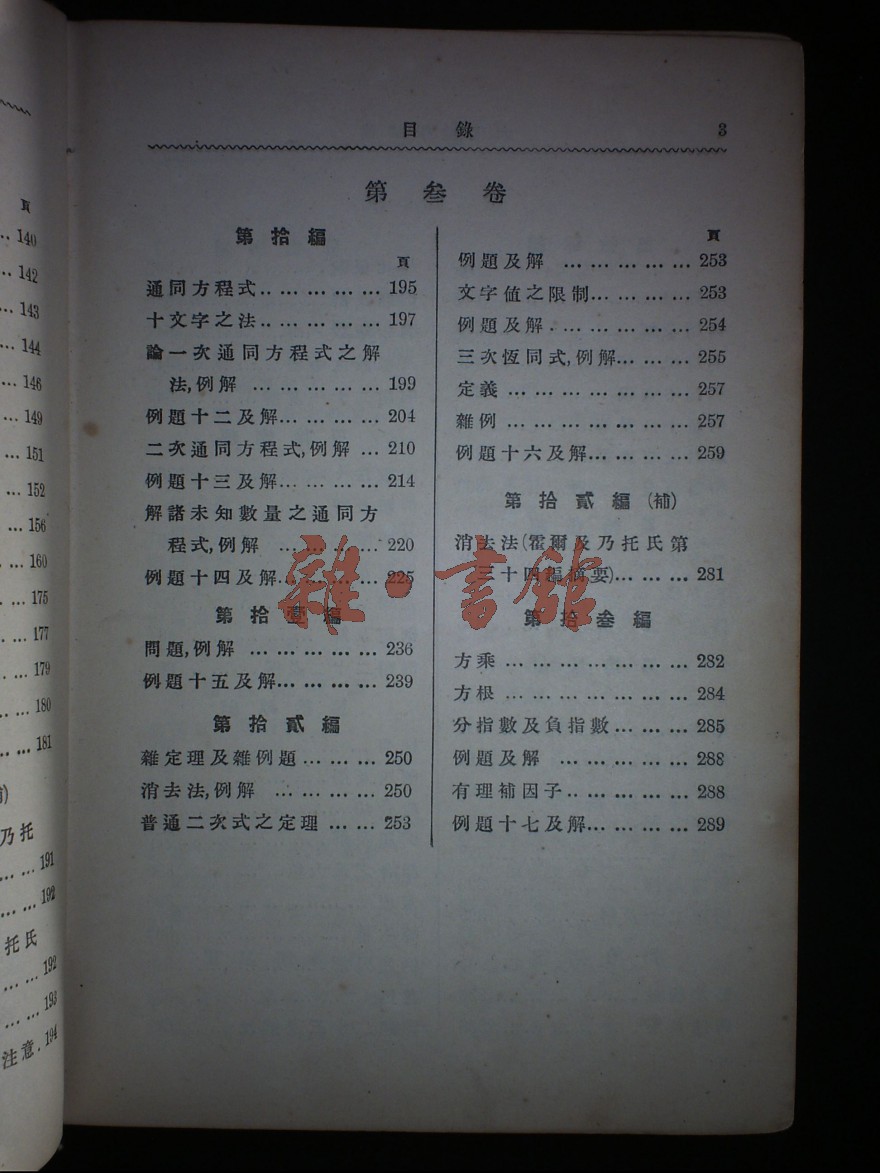 頁
.. 140
... 142
... 143
... 144
... 146
... 149
... 151
... 152
... 156
... 160
... 175
... 177
... 179
... 180
... 181
乃托
... ... 191
... ... 192
托氏
... ... 192
... ... 193
注意. 194
目錄 3
第叄卷
第拾編
頁
通同方程式.. ... ... ... ... 195
十文字之法.. ... ... ... ... 197
論一次通同方程式之解
法,例解 ... ... ... ... ... 199
例題十二及解... ... ... ... 204
二次通同方程式,例解 ... 210
例題十三及解... ... ... ... 214
解諸未知數量之通同方
程式,例解 ... ... ... ... 220
例題十四及解... ... ... ... 225
第拾壹編
問題,例解 ... ... ... ... ... 236
例題十五及解... ... ... ... 239
第拾貳編
雜定理及雜例題 ... ... ... 250
消去法,例解 ... ... ... ... 250
普通二次式之定理 ... ... 253
頁
例題及解 ... ... ... ... ... 253
文字値之限制... ... ... ... 253
例題及解. ... ... ... ... ... 254
三次恆同式,例解... ... ... 255
定義 ... ... ... ... ... ... ... 257
雜例 ... ... ... ... ... ... ... 257
例題十六及解... ... ... ... 259
第拾貳編(補)
消去法(霍爾及乃托氏第
三十四編摘要)... ... ... 281
第拾叄編
方乘 ... ... ... ... ... ... ... 282
方根 ... ... ... ... ... ... ... 284
分指數及負指數 ... ... ... 285
例題及解 ... ... ... ... ... 288
有理補因子.. ... ... ... ... 288
例題十七及解... ... ... ... 289
雜·書館